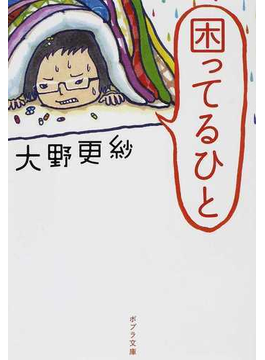 困ってるひと
大野更紗
ポプラ文庫